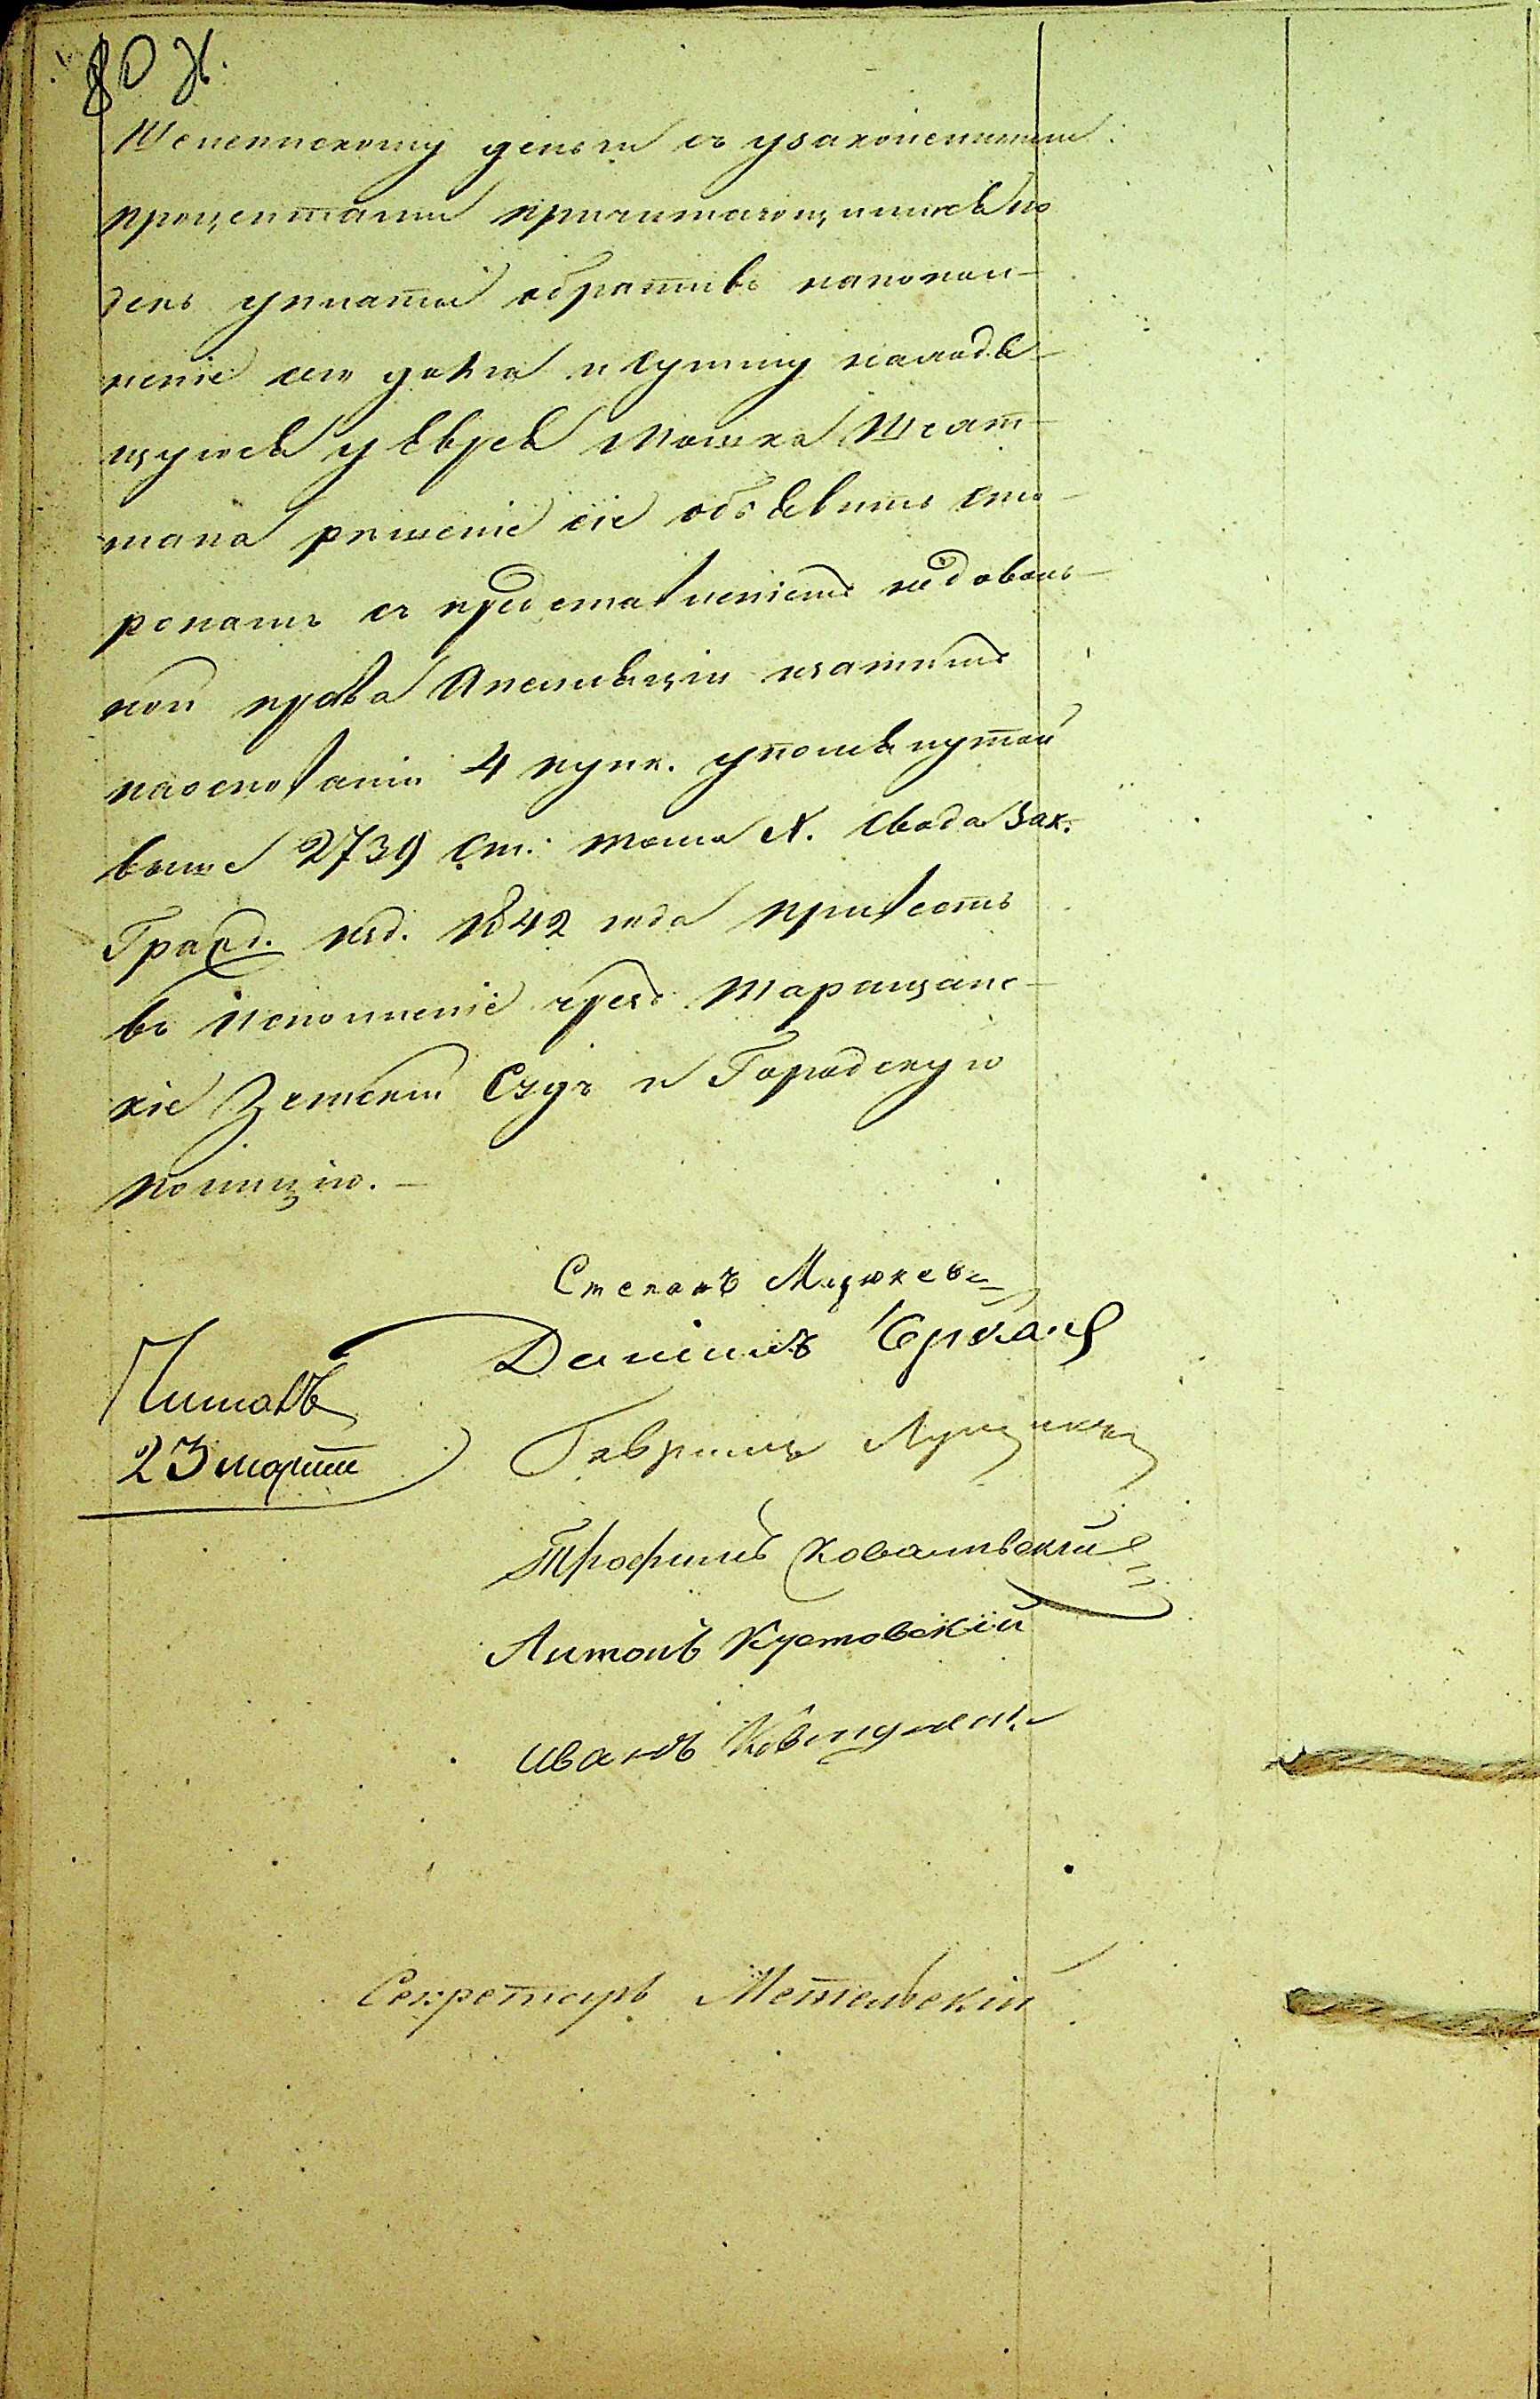 80 Ж.
Щепенискому деньги съ узаконенными
процентами причитающимися по
день уплаты обративъ на попол-
неніе сего долга и сумму находя-
щуюся у Еврея Мошка Шехт-
мана решеніе сіе объявить сто-
ронамъ съ предоставленіемъ недоволь-
ной права Апелляціи
на основаніи 4 пунк. упомянутой
выше 2739 Ст: тома X. Свода Зак.
Гражд. изд. 1842 года привесть
въ исполненіе чрезъ Таращанс-
кіе Земскій Судъ и Городскую
полицію. -
Степанъ
Даніилъ
Читалъ
23 марта
Гавріилъ
Трофимъ Ковалевскій
Антонъ Кустовскій
Иванъ
Секретарь Метельскій